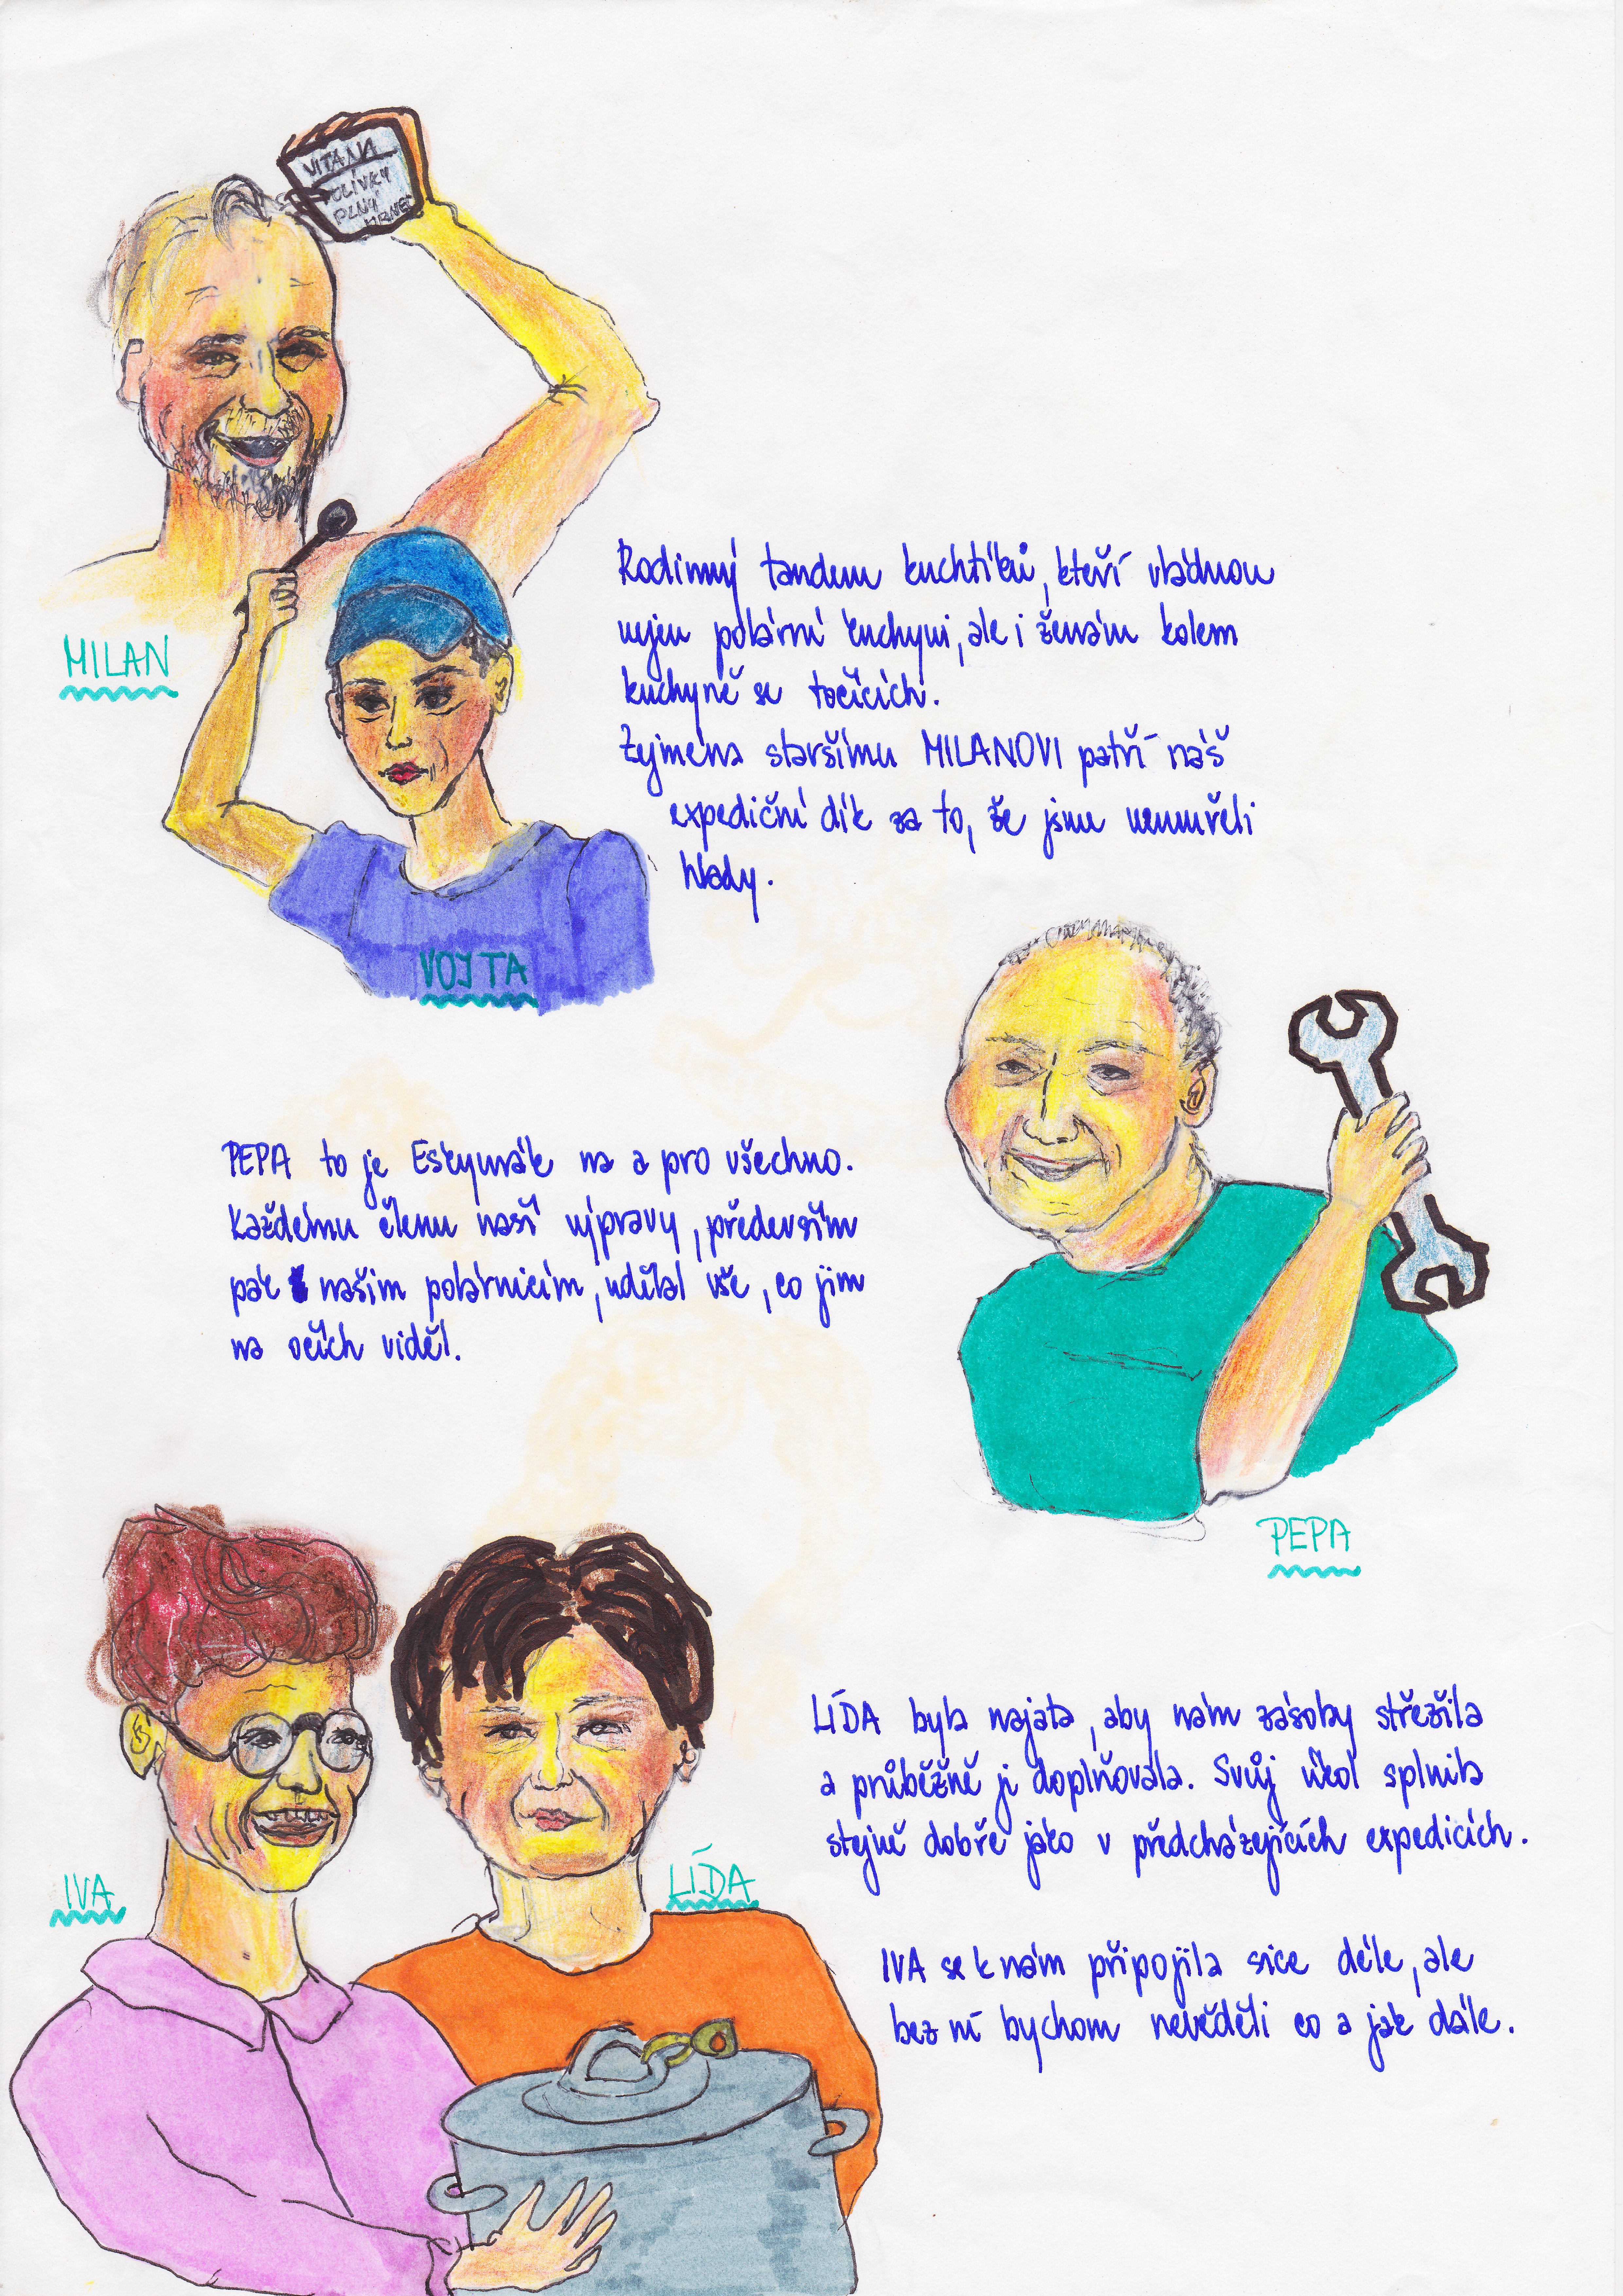 VITANA
POLÍVKY
PLNÝ
HRNEC
MILAN
Rodinný tandem kuchtíků, kteří vládnou
nejen polární kuchyni, ale i ženám kolem
kuchyně se točících.
Zejména staršímu MILANOVI patří náš
expediční dík za to, že jsme neumřeli
hlady.
VOJTA
PEPA to je Eskymák na a pro všechno.
Každému členu naší výpravy, především
pak našim polárnicím, udělal vše, co jim
na očích viděl.
PEPA
LÍDA byla najata, aby nám zásoby střežila
a průběžně ji doplňovala. Svůj úkol splnila
stejně dobře jako v předcházejících expedicích.
IVA
LÍDA
IVA se k nám připojila sice déle, ale
bez ní bychom nevěděli co a jak dále.